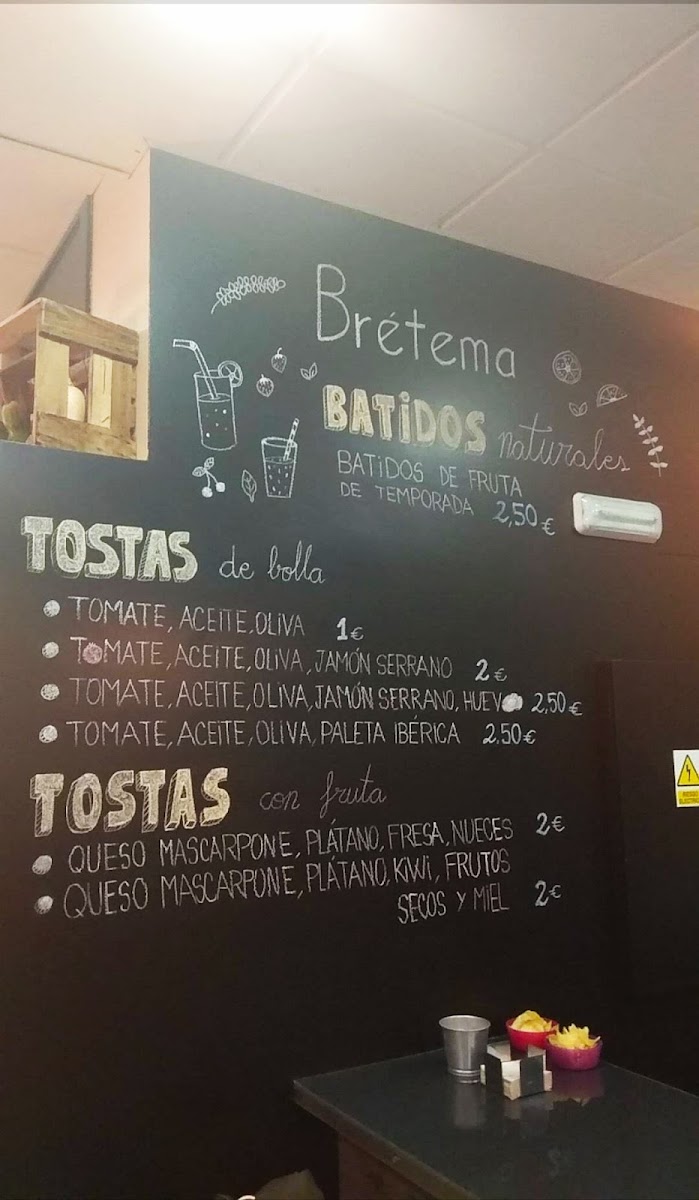 Brétema
BATiDOS naturales
BATiDOS DE FRUTA
DE TEMPORADA 2,50€
TOSTAS de bolla
• TOMATE, ACEITE, OLIVA 1€
• TOMATE, ACEITE, OLIVA, JAMÓN SERRANO 2€
• TOMATE, ACEITE, OLIVA, JAMÓN SERRANO, HUEVO 2,50€
• TOMATE, ACEITE, OLIVA, PALETA IBÉRICA 2,50€
TOSTAS con fruta
• QUESO MASCARPONE, PLÁTANO, FRESA, NUECES 2€
• QUESO MASCARPONE, PLÁTANO, KiWi, FRUTOS
SECOS Y MIEL 2€